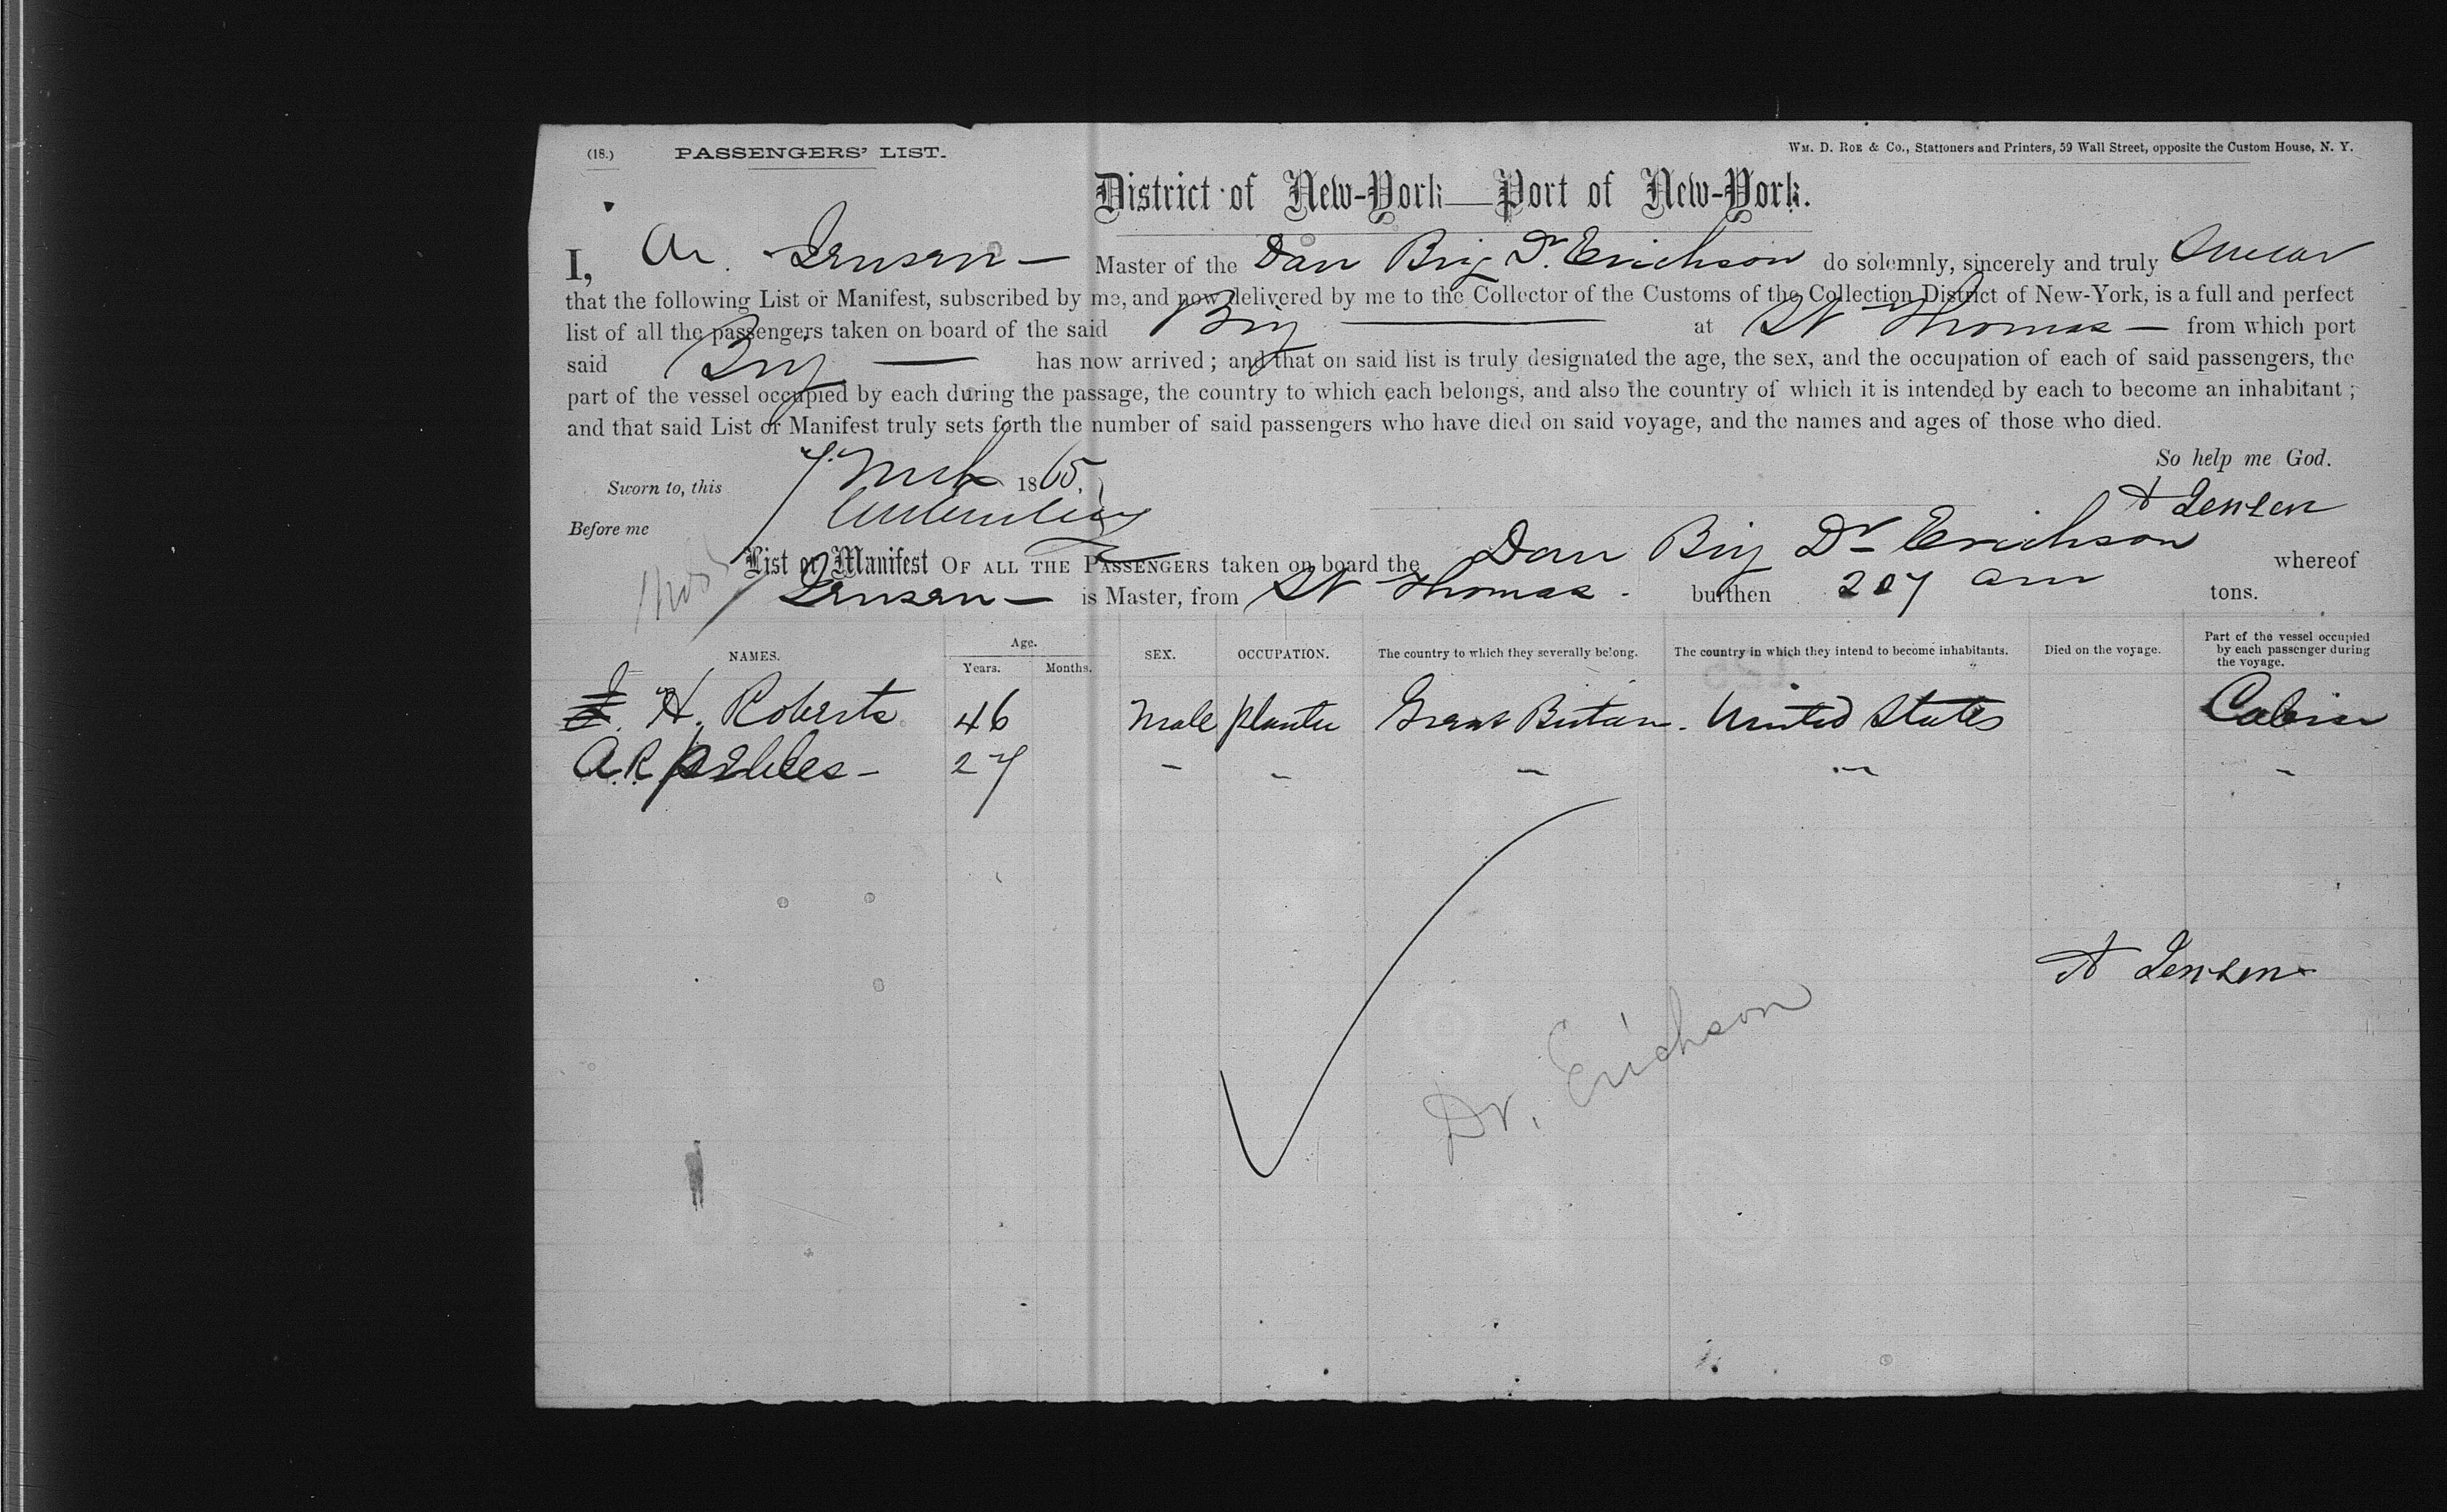 (18.) PASSENGERS' LIST. WM. D. ROE & CO., Stationers and Printers, 59 Wall Street, opposite the Custom House, N. Y.
District of New-York—Port of New-York.
I, A. Jensen — Master of the Dan Brig Dr. Erichson do solemnly, sincerely and truly Swear
that the following List or Manifest, subscribed by me, and now delivered by me to the Collector of the Customs of the Collection District of New-York, is a full and perfect
list of all the passengers taken on board of the said Brig — at St Thomas — from which port
said Brig — has now arrived ; and that on said list is truly designated the age, the sex, and the occupation of each of said passengers, the
part of the vessel occupied by each during the passage, the country to which each belongs, and also the country of which it is intended by each to become an inhabitant ;
and that said List or Manifest truly sets forth the number of said passengers who have died on said voyage, and the names and ages of those who died.
So help me God.
Sworn to, this 7 Mch 1865.
A Jensen
Before me
List or Manifest OF ALL THE PASSENGERS taken on board the Dan Brig Dr Erichson whereof
Jensen — is Master, from St Thomas. burthen 207 tons.
NAMES. Age. Years. Months. SEX. OCCUPATION. The country to which they severally belong. The country in which they intend to become inhabitants. Died on the voyage. Part of the vessel occupied by each passenger during the voyage.
H. Roberts 46 Male planter Great Britain. United States Cabin
A. R. 27 - - - - -
A Jensen
Dr. Erichson